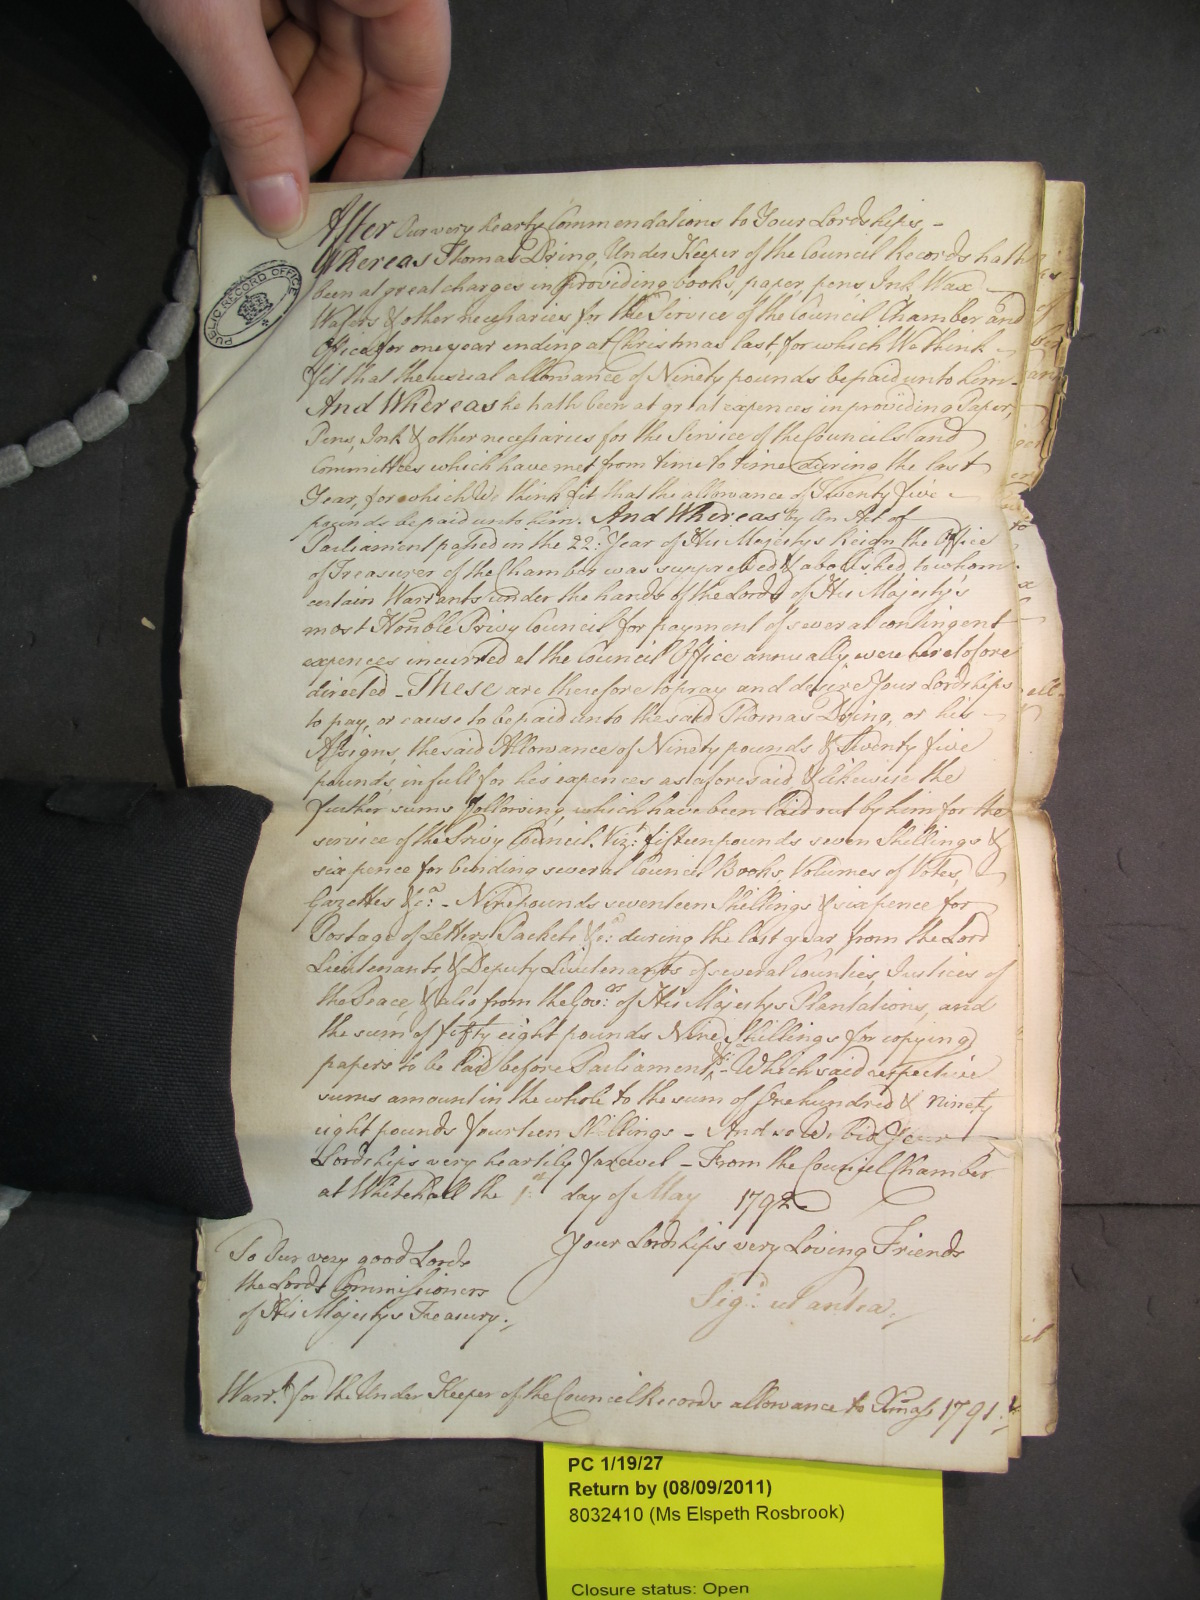 After Our very hearty Commendations to Your Lordships, -
Whereas Thomas Dring, Under Keeper of the Council Records hath
been at great charges in providing books, paper, pens, Ink Wax
Wafers & other necessaries for the Service of the Council Chamber and
Office for one year ending at Christmas last, for which We think
fit that the usual allowance of Ninety pounds be paid unto him -
And Whereas he hath been at great expences in providing Paper,
Pens, Ink & other necessaries for the Service of the Councils and
Committees which have met from time to time during the last
Year, for which We think fit that the allowance of Twenty five
pounds be paid unto him. And Whereas by An Act of
Parliament passed in the 22: Year of His Majestys Reign the Office
of Treasurer of the Chamber was suppressed & abolished to whom
certain Warrants under the hands of the Lords of His Majesty's
most Honoble Privy Council for payment of several contingent
expences incurred at the Council Office annually were heretofore
directed - These are therefore to pray and desire Your Lordships
to pay, or cause to be paid unto the said Thomas Dring, or his
Assigns, the said Allowance of Ninety pounds & Twenty five
pounds, in full for his expences as aforesaid & likewise the
further sums following, which have been laid out by him for the
service of the Privy Council. Vizt: fifteen pounds seven Shillings &
six pence for binding several Council Books, Volumes of Votes,
Gazettes &ca: - Nine pounds seventeen Shillings & six pence for
Postage of Letters Packets &ca: during the last year, from the Lord
Lieutenants & Deputy Lieutenants of several Counties, Justices of
the Peace, & also from the Govrs: of His Majestys Plantations, and
the sum of fifty eight pounds Nine Shillings for copying
papers to be laid before Parliament - Which said respective
sums amount in the whole to the sum of One hundred & ninety
eight pounds fourteen Shillings - And so We bid Your
Lordships very heartily farewel - From the Council Chamber
at Whitehall the 1st: day of May 1792
Your Lordships very Loving Friends
To Our very good Lords
the Lords Commissioners
of His Majestys Treasury.
Sigd: ut antea.
Warrt. for the Under Keeper of the Council Records allowance to Xmas 1791.
PUBLIC RECORD OFFICE
PC 1/19/27
Return by (08/09/2011)
8032410 (Ms Elspeth Rosbrook)
Closure status: Open